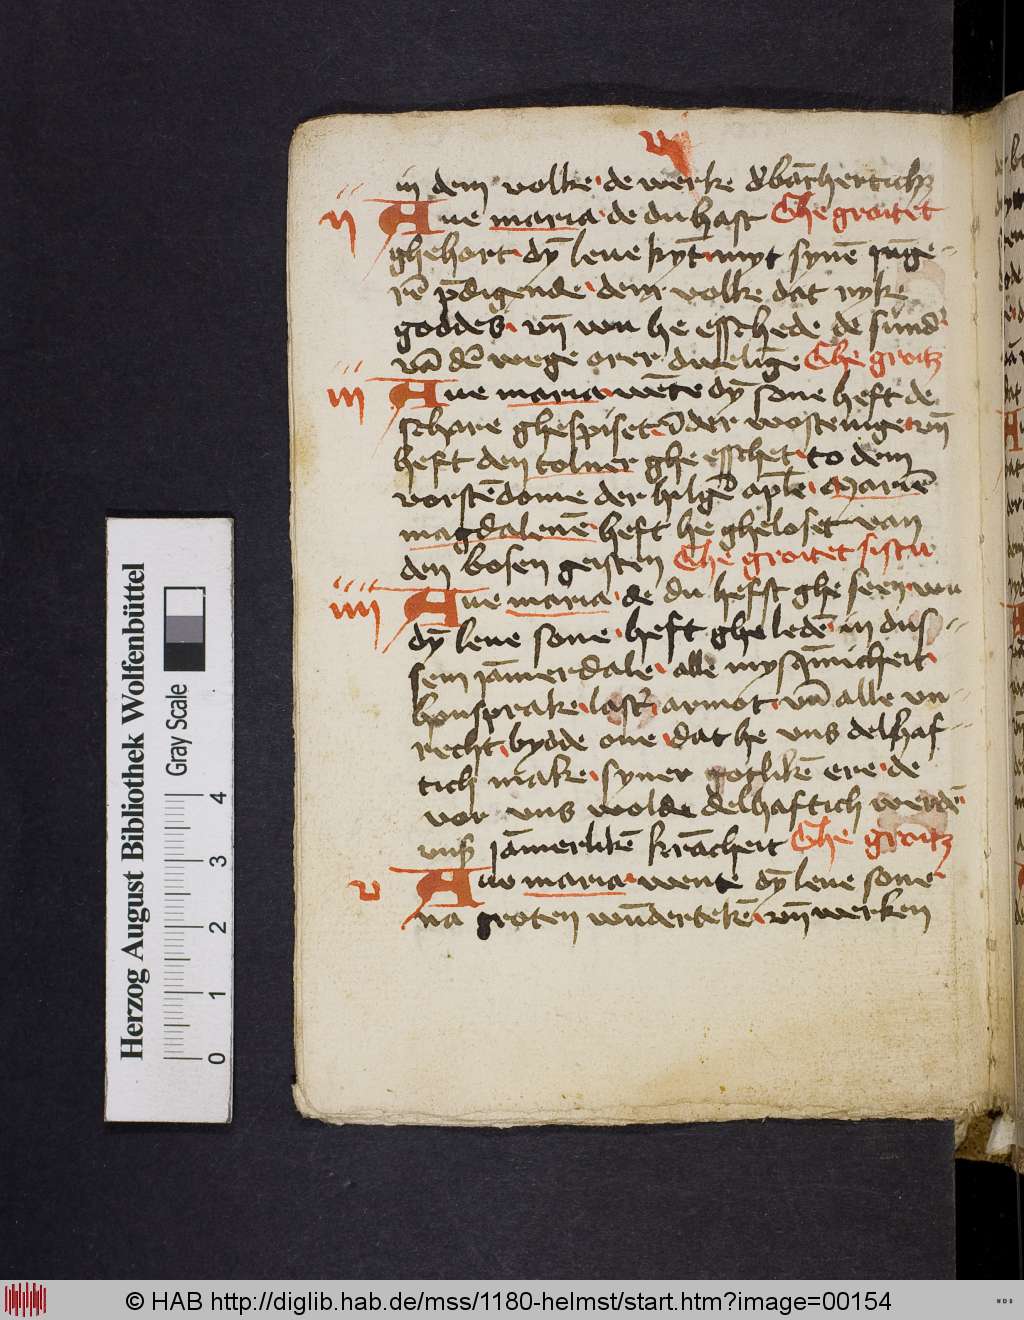 in dem volke · de werke d'bāchertich
ii Aue maria · de du hast Ghe groitet
ghehort · dȳ leue kȳt · myt synē iūge-
rē p̄digende · dem volke dat ryke
goddes · vn̄ wu he esschede de sund'
vā dē wege orer dwelīge Ghe groitz
iii Aue maria wēte dȳ sone heft de
schare ghespiset · ī der wosteninge · vn̄
heft den tolner ghe esschet · to dem
vorstēdome der hilgē apl'e · Mariē
magdalenē · heft he gheloset van
den bosen geisten Ghe groitet sistu
iiii Aue maria · de du hefst ghe seen wu
dȳ leue sone · heft ghe ledē · in dus-
sem iāmerdale · alle
honsprake · laster · armot · vn̄ alle vn-
recht · bydde one · dat he vns delhaf-
tich make · syner gotlikē ere · de
vor vns wolde delhaftich werdē
vnser iāmerlikē krācheit Ghe groitz
v Aue maria · wente dȳ leue sone
na groten wūdertekē · vn̄ werken
Herzog August Bibliothek Wolfenbüttel
Gray Scale
0 1 2 3 4
© HAB http://diglib.hab.de/mss/1180-helmst/start.htm?image=00154